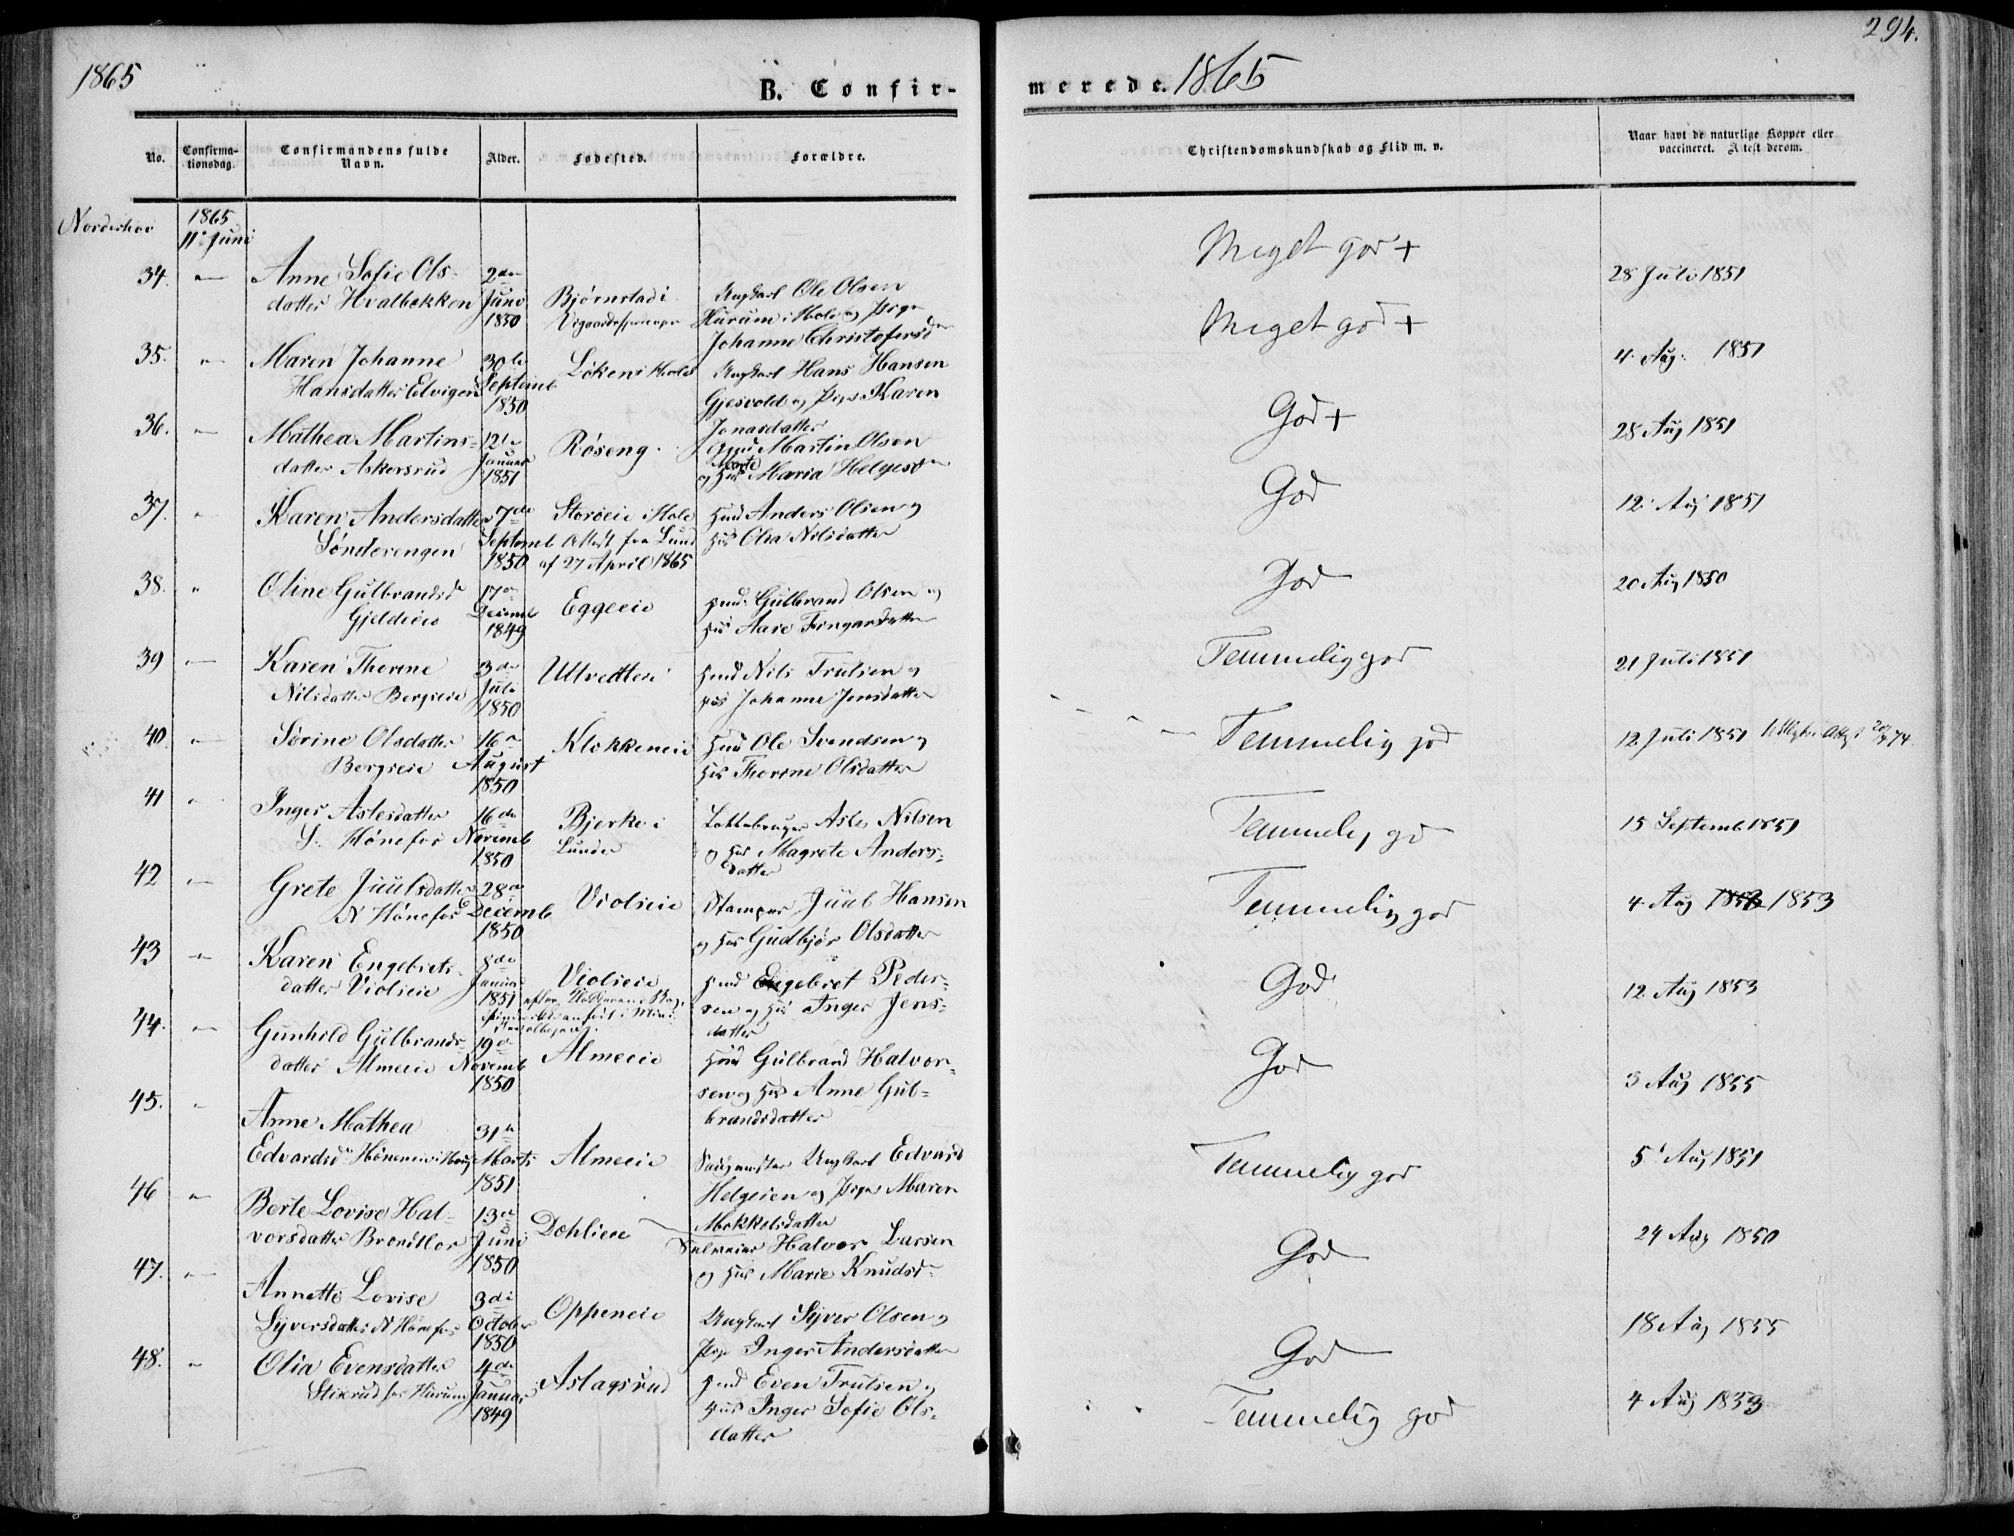 1865
294.
B. Confir-
merede. 1865
No.
Confirma-
tionsdag.
Confirmandens fulde
Navn.
Alder.
Fødested.
Forældre.
Christendomskundskab og Flid m. v.
Naar havt de naturlige Kopper eller
vaccineret. Attest derom.
Norderhov
1865
11te Juni
34. " Anne Sofie Ols-
datter Hvalbækken
2den
Juni
1850
Bjørnstad i
Ungkarl Ole Olsen
Hurum i Hole og Pige
Johanne Christofersd
Meget god +
28 Juli 1851
35. " Maren Johanne
Hansdatter Elvigen
30te
Septemb
1850
Løken i Hole
Ungkarl Hans Hansen
Gjesvold og Pige Karen
Jonasdatter
Meget god +
4. Aug. 1851
36. " Mathea Martins-
datter Askersrud
12te
Januar
1851
Røseng
Martin Olsen
og Hus Marte Maria Helgesd
God +
28 Aug 1851
37. " Karen Andersdatter
Sønderengen
7de
Septemb
1850
Storøeie i Hole
Attest fra Lund
af 27 April 1865
Hmd Anders Olsen og
Hus Olia Nilsdatter
God
12 Aug 1851
38. " Oline Gulbrandsd
17de
Decemb
1849
Eggeeie
Hmd. Gulbrand Olsen og
Hus Aase
God
20 Aug 1850
39 " Karen Thorine
Nilsdatter Bergseie
3de
Juli
1850
Ultvedteie
Hmd Nils Trulsen og
Hus Johanne Jensdatter
Temmelig god
21 Juli 1851
40. " Sørine Olsdatter
Bergseie
16de
August
1850
Klokkeneie
Hmd Ole Svendsen og
Hus Thorine Olsdatter
Temmelig god
12 Juli 1851
41 " Inger Aslesdatter
S. Hønefos
16de
Novemb
1850
Bjerke i
Lunder
Asle Nilsen
og Hus Magrete Anders-
datter
Temmelig god
15 Septemb 1851
42 " Grete Juulsdatter
N Hønefos
28de
Decemb
1850
Violseie
Stamper Juul Hansen
og Hus Gudbjør Olsdatter
Temmelig god
4 Aug 1852 1853
43 " Karen Engebrets-
datter Violseie
8de
Januar
1851
Violseie
Hmd Engebret Peder-
sen og Hus Inger Jens-
datter
God
12 Aug 1853
44. " Gunhild Gulbrands-
datter Almeeie
19de
Novemb
1850
Almeeie
Hmd Gulbrand Halvor-
sen og Hus Anne Gul-
brandsdatter
God
3 Aug 1855
45. " Anne Mathea
Edvardsd
31te
Marts
1851
Almeeie
Ungkarl Edvard
Helgesen og Pige Maren
Mokkelsdatter
Temmelig god
5 Aug 1851
46 " Berte Lovise Hal-
vorsdatter
13de
Juni
1850
Dæhlieie
Halvor Larsen
og Hus Marie Knudsd
God
24 Aug 1850
47. " Annette Lovise
Syversdatter N Hønefos
3die
October
1850
Oppeneie
Ungkarl Syver Olsen og
Pige Inger Andersdatter
God
18 Aug 1855
48. " Olia Evensdatter
Stixrud for Hurum
4de
Januar
1849
Aslagsrud
Hmd Even Trulsen og
Hus Inger Sofie Ols-
datter
Temmelig god
4 Aug 1853